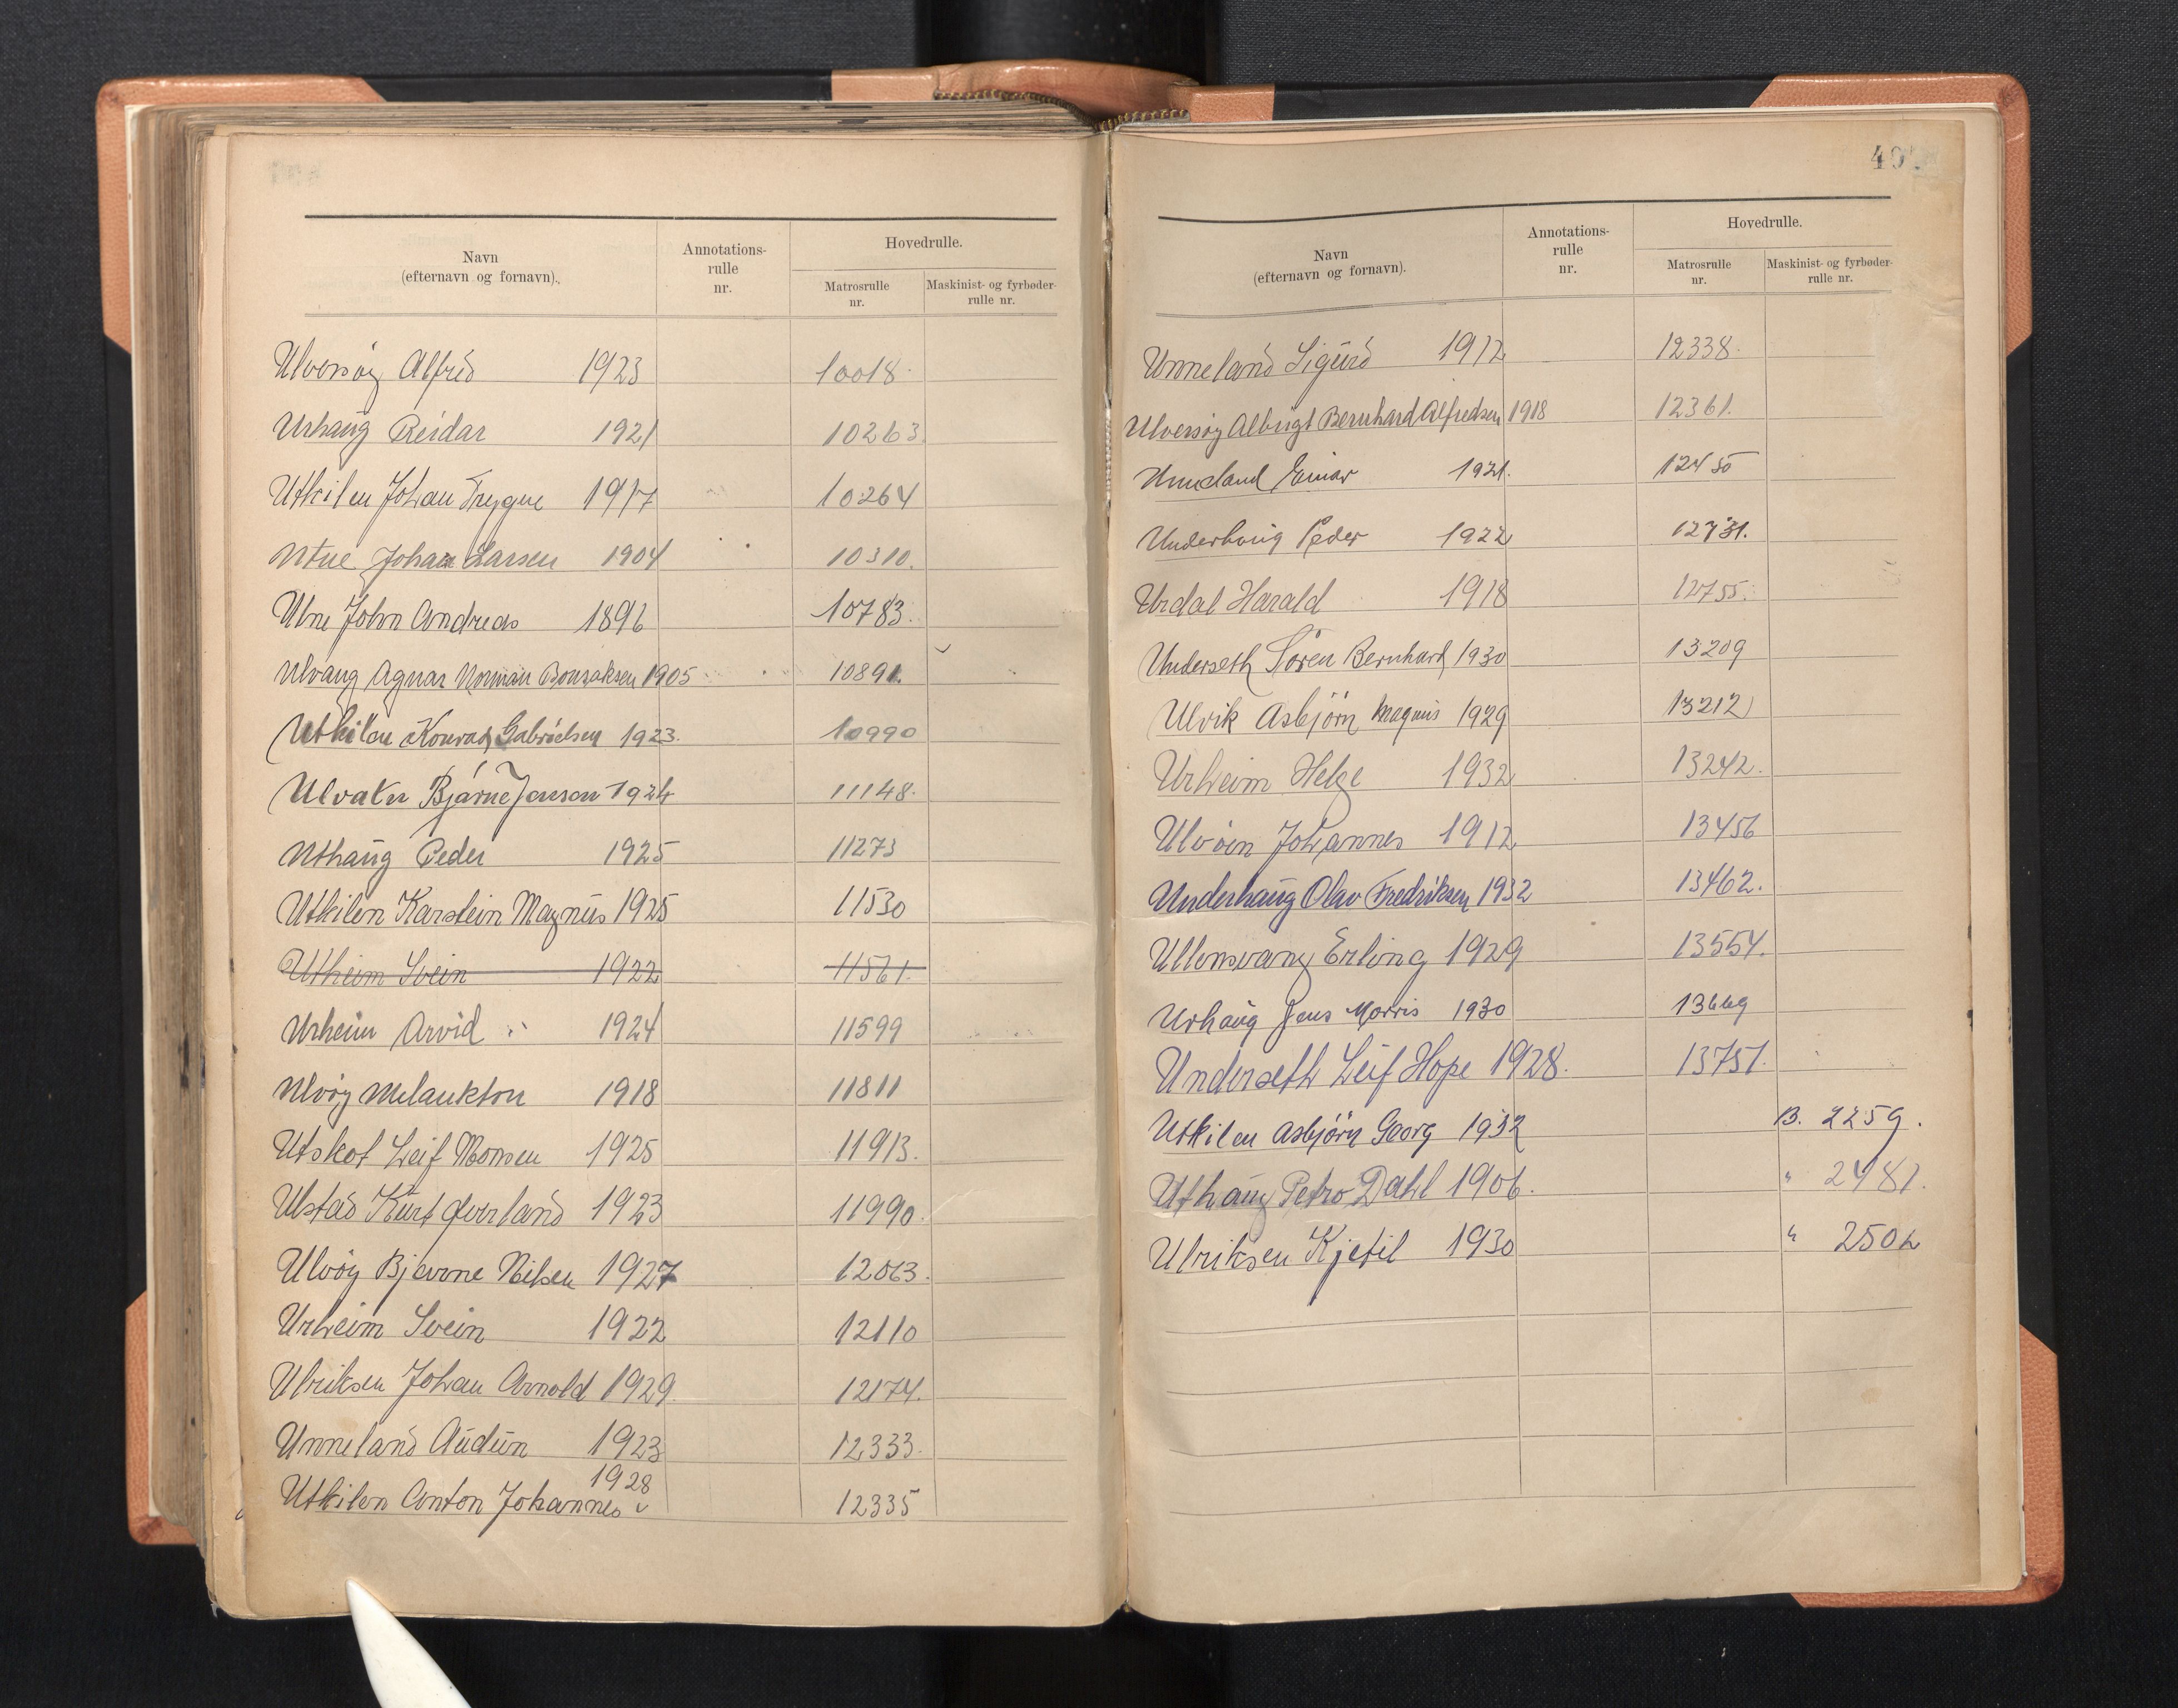 Navn
(efternavn og fornavn).
Annotations-
rulle
nr.
Hovedrulle.
Matrosrulle
nr.
Maskinist- og fyrbøder-
rulle nr.
Ulversøy Alfred 1923 10018.
Urhaug Reidar 1921 10263.
Utkilen Johan Trygve 1917 10264
Utne Johan Larsen 1904 10310.
Utne John Andreas 1896 10783.
Ulvang Agnar Norman Bonsaksen 1905 10891.
Utkilen Konrad Gabrielsen 1923. 10990
Ulvatn Bjarne Jenson 1924 11148.
Uthaug Peder 1925 11273
Utkilen Karstein Magnus 1925 11530
Utheim Svein 1922 11561.
Urheim Arvid 1924 11599
Ulvøy Melankton 1918 11811
Utskot Leif Monsen 1925 11913.
Ulstad Kurt Øverland 1923 11990.
Ulvøy Bjarne Nilsen 1927 12063.
Urheim Svein 1922 12110
Ulriksen Johan Arnold 1929. 12174.
Unneland Audun 1923 12333.
1928
Utkilen Anton Johannes 12335
Navn
(efternavn og fornavn).
Annotations-
rulle
nr.
Hovedrulle.
Matrosrulle
nr.
Maskinist- og fyrbøder-
rulle nr.
Unneland Sigurd 1912 12338.
Ulversøy Albrigt Bernhard Alfredsen 1918 12361.
Unneland Einar 1921. 12450
Underhaug Peder 1922 12731.
Urdal Harald 1918 12755.
Underseth Sören Bernhard 1930 13209
Ulvik Asbjörn Magnus 1929 13212
Urheim Helge 1932 13242.
Ulvöen Johannes 1912 13456
Underhaug Olav Fredriksen 1932 13462.
Ullensvang Erling 1929 13554.
Urhaug Jens Morris 1930 13669
Underseth Leif Hope 1928. 13751.
Utkilen Asbjörn Georg 1932 B. 2259.
Uthaug Petro Dahl 1906. " 2481.
Ulriksen Kjetil 1930 " 2502